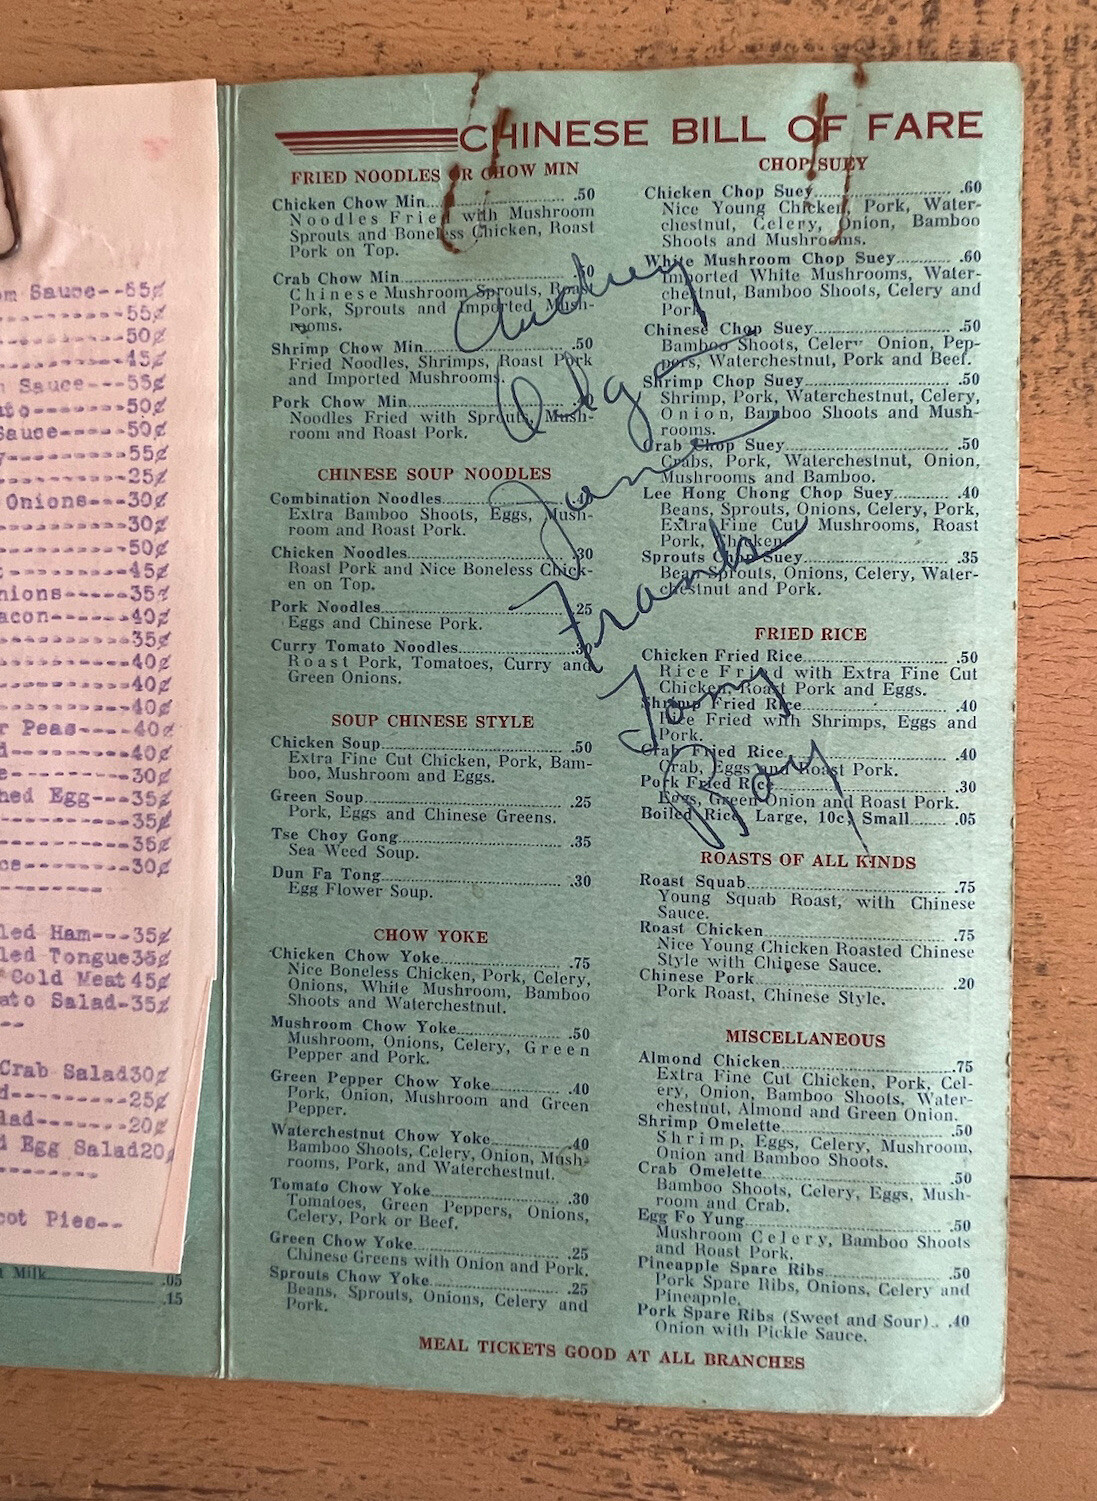 Sauce--65¢
55¢
50¢
45¢
Sauce---55¢
50¢
Sauce-----50¢
55¢
25¢
Onions---30¢
30¢
50¢
45¢
35¢
40¢
35¢
40¢
40¢
40¢
Peas----40¢
40¢
30¢
Egg---35¢
35¢
35¢
30¢
Ham---35¢
Tongue35¢
Cold Meat 45¢
Salad-35¢
Crab Salad30¢
25¢
20¢
Egg Salad20
Pies--
Milk .05
.15
CHINESE BILL OF FARE
FRIED NOODLES OR CHOW MIN
Chicken Chow Min .50
Noodles Fried with Mushroom
Sprouts and Boneless Chicken, Roast
Pork on Top.
Crab Chow Min
Chinese Mushroom Sprouts, Roast
Pork, Sprouts and Imported Mush-
rooms.
Shrimp Chow Min .50
Fried Noodles, Shrimps, Roast Pork
and Imported Mushrooms.
Pork Chow Min
Noodles Fried with Sprouts, Mush-
room and Roast Pork.
CHINESE SOUP NOODLES
Combination Noodles .40
Extra Bamboo Shoots, Eggs, Mush-
room and Roast Pork.
Chicken Noodles .30
Roast Pork and Nice Boneless Chick-
en on Top.
Pork Noodles .25
Eggs and Chinese Pork.
Curry Tomato Noodles .30
Roast Pork, Tomatoes, Curry and
Green Onions.
SOUP CHINESE STYLE
Chicken Soup .50
Extra Fine Cut Chicken, Pork, Bam-
boo, Mushroom and Eggs.
Green Soup .25
Pork, Eggs and Chinese Greens.
Tse Choy Gong .35
Sea Weed Soup.
Dun Fa Tong .30
Egg Flower Soup.
CHOW YOKE
Chicken Chow Yoke .75
Nice Boneless Chicken, Pork, Celery,
Onions, White Mushroom, Bamboo
Shoots and Waterchestnut.
Mushroom Chow Yoke .50
Mushroom, Onions, Celery, Green
Pepper and Pork.
Green Pepper Chow Yoke .40
Pork, Onion, Mushroom and Green
Pepper.
Waterchestnut Chow Yoke .40
Bamboo Shoots, Celery, Onion, Mush-
rooms, Pork, and Waterchestnut.
Tomato Chow Yoke .30
Tomatoes, Green Peppers, Onions,
Celery, Pork or Beef.
Green Chow Yoke .25
Chinese Greens with Onion and Pork.
Sprouts Chow Yoke .25
Beans, Sprouts, Onions, Celery and
Pork.
CHOP SUEY
Chicken Chop Suey .60
Nice Young Chicken, Pork, Water-
chestnut, Celery, Onion, Bamboo
Shoots and Mushrooms.
White Mushroom Chop Suey .60
Imported White Mushrooms, Water-
chestnut, Bamboo Shoots, Celery and
Pork.
Chinese Chop Suey .50
Bamboo Shoots, Celery Onion, Pep-
pers, Waterchestnut, Pork and Beef.
Shrimp Chop Suey .50
Shrimp, Pork, Waterchestnut, Celery,
Onion, Bamboo Shoots and Mush-
rooms.
Crab Chop Suey .50
Crabs, Pork, Waterchestnut, Onion,
Mushrooms and Bamboo.
Lee Hong Chong Chop Suey .40
Beans, Sprouts, Onions, Celery, Pork,
Extra Fine Cut Mushrooms, Roast
Pork, Chicken.
Sprouts Chop Suey .35
Bean Sprouts, Onions, Celery, Water-
chestnut and Pork.
FRIED RICE
Chicken Fried Rice .50
Rice Fried with Extra Fine Cut
Chicken, Roast Pork and Eggs.
Shrimp Fried Rice .40
Rice Fried with Shrimps, Eggs and
Pork.
Crab Fried Rice .40
Crab, Eggs and Roast Pork.
Pork Fried Rice .30
Eggs, Green Onion and Roast Pork.
Boiled Rice, Large, 10c; Small .05
ROASTS OF ALL KINDS
Roast Squab .75
Young Squab Roast, with Chinese
Sauce.
Roast Chicken .75
Nice Young Chicken Roasted Chinese
Style with Chinese Sauce.
Chinese Pork .20
Pork Roast, Chinese Style.
MISCELLANEOUS
Almond Chicken .75
Extra Fine Cut Chicken, Pork, Cel-
ery, Onion, Bamboo Shoots, Water-
chestnut, Almond and Green Onion.
Shrimp Omelette .50
Shrimp, Eggs, Celery, Mushroom,
Onion and Bamboo Shoots.
Crab Omelette .50
Bamboo Shoots, Celery, Eggs, Mush-
room and Crab.
Egg Fo Yung .50
Mushroom Celery, Bamboo Shoots
and Roast Pork.
Pineapple Spare Ribs .50
Pork Spare Ribs, Onions, Celery and
Pineapple.
Pork Spare Ribs (Sweet and Sour) .40
Onion with Pickle Sauce.
Audrey
Olga
June
Frank
Tony
Ray
MEAL TICKETS GOOD AT ALL BRANCHES